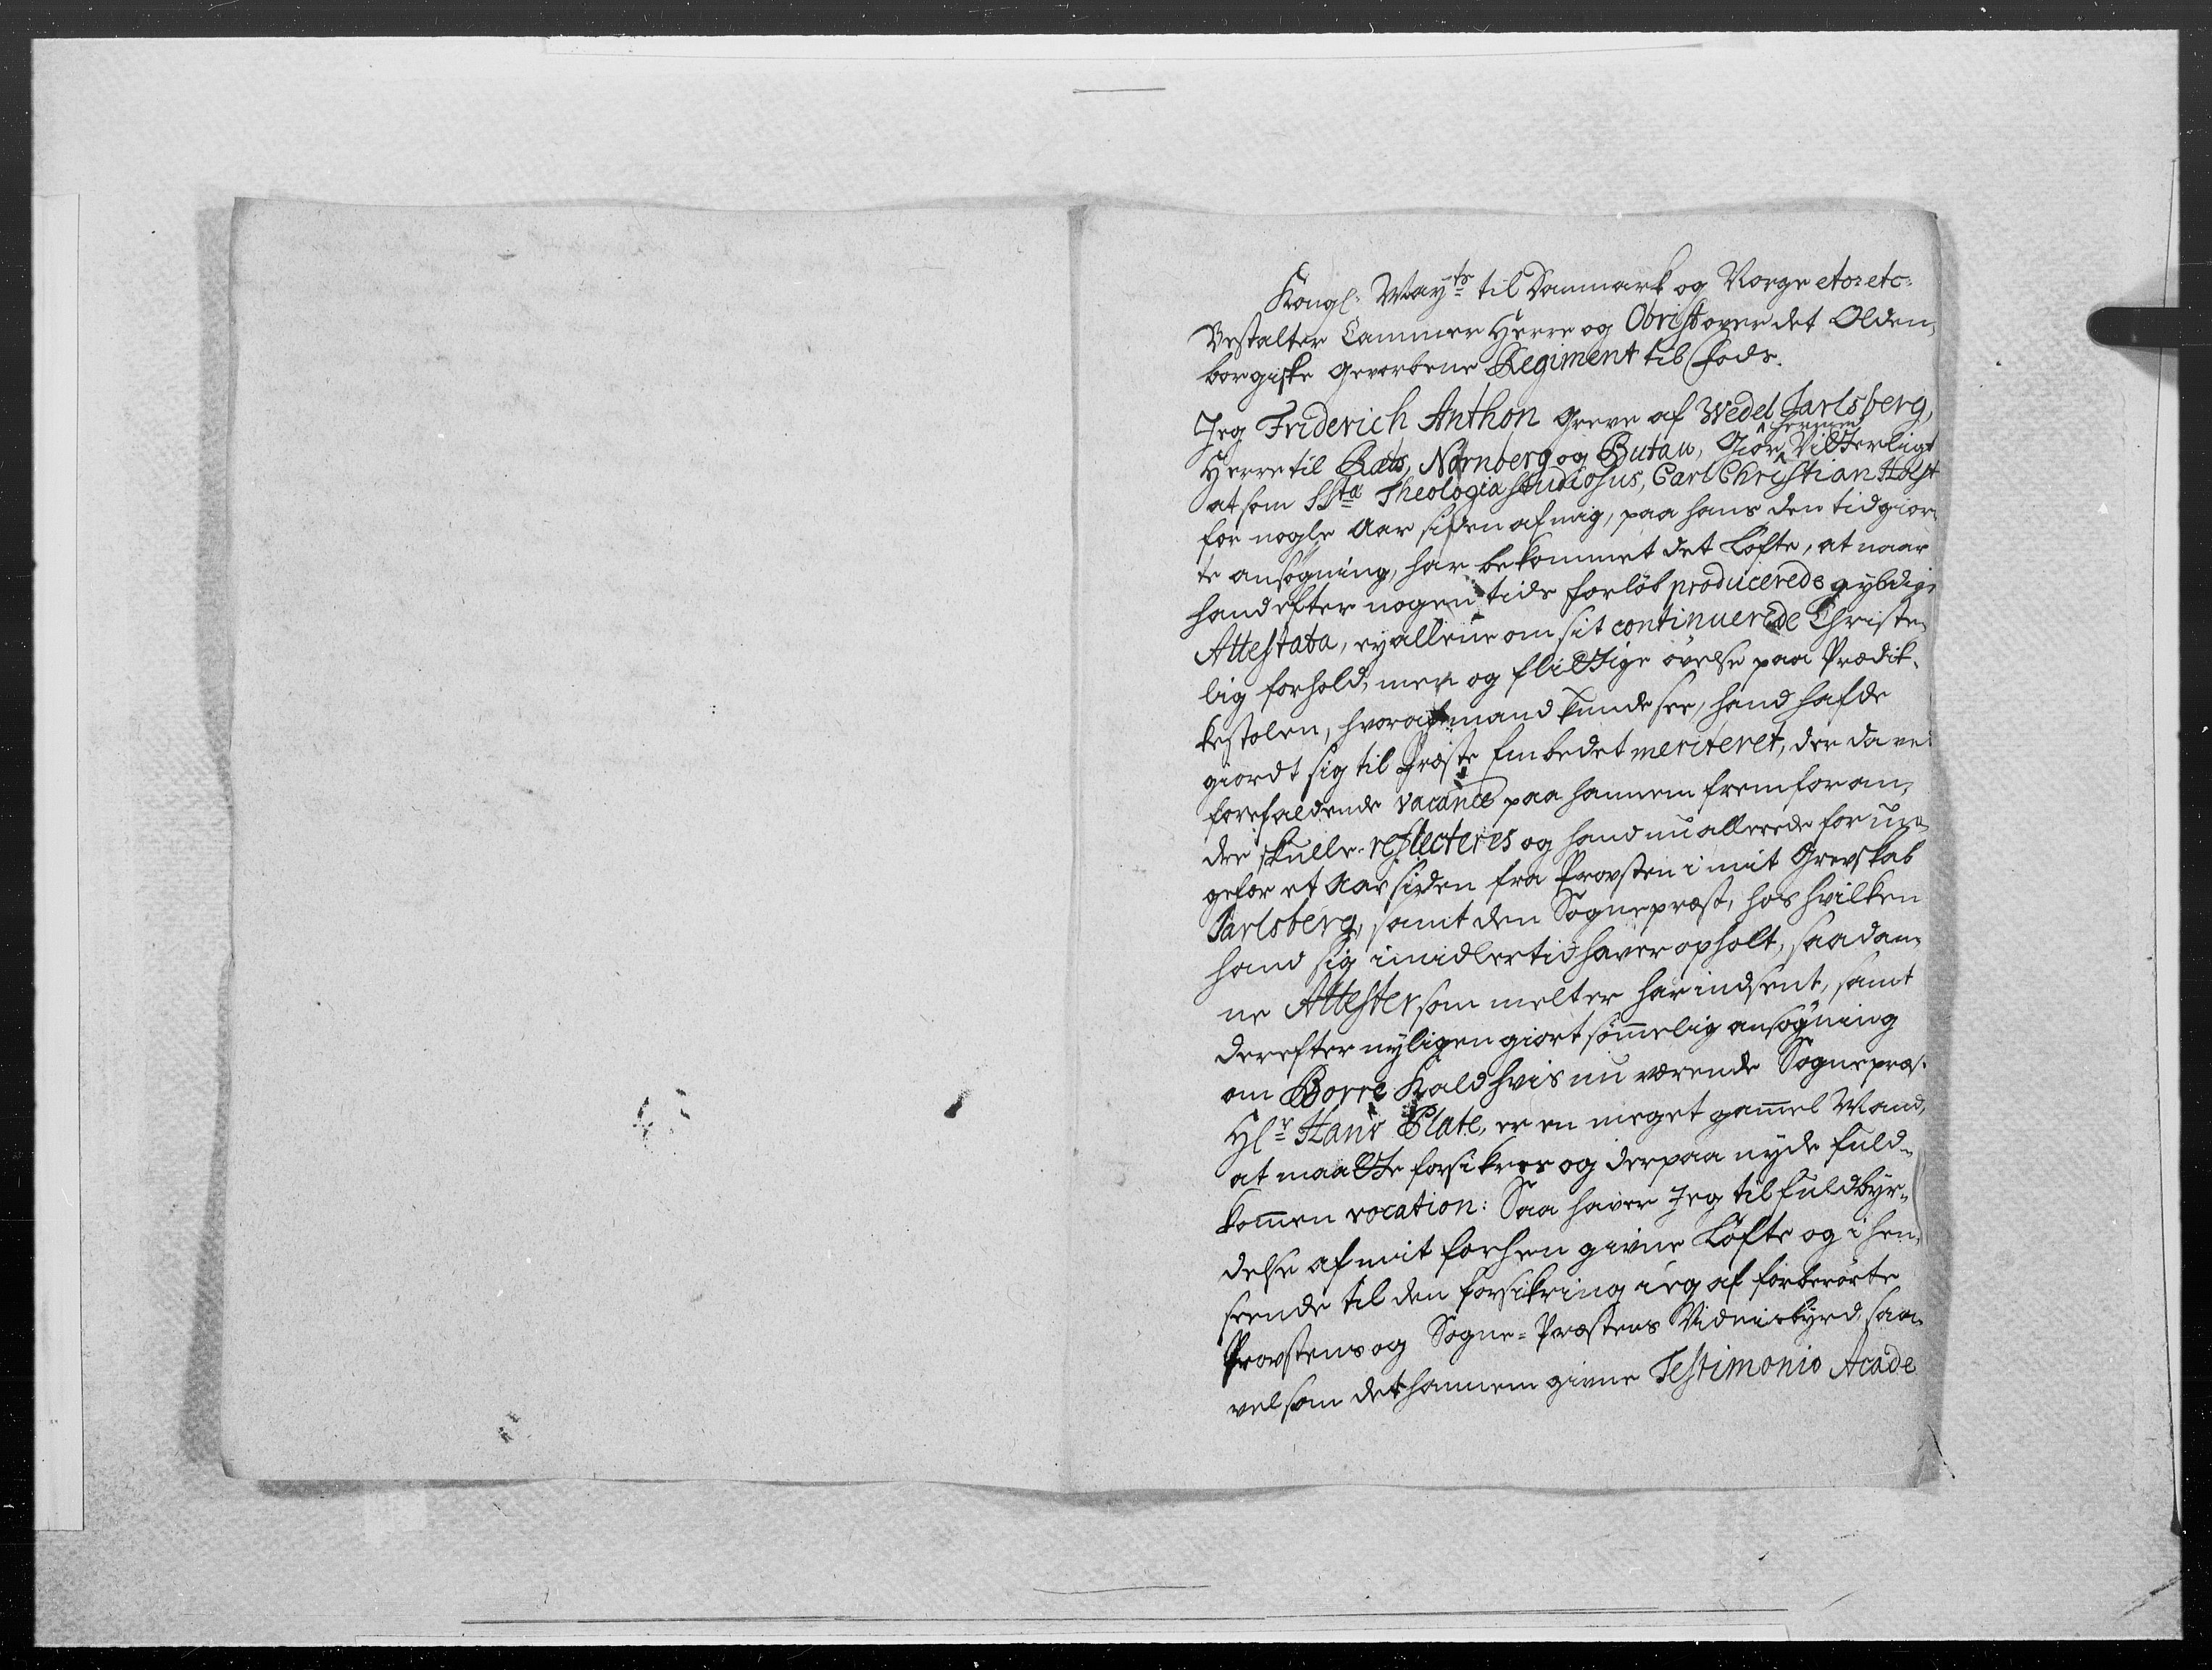 Kongl: Mayts til Danmark og Norge etc: etc:
Bestalter Cammer Herre og Obrist over det Olden,
borgiske Gevorbene Regiment til Fods.
Jeg Friderich Anthon Greve af Wedel Jarlsberg,
hermed
Herre til Rets, Nörnberg og Butau, Giör Vitterligt
at som SSta Theologia Studiosus, Carl Christian Holst
for nogle Aar siden af mig, paa hans den tid gior,
te ansögning, har bekommet det Löfte, at naar
hand efter nogen tids forlöb producerede gyldig,
Attestata, ey allene om sit continuerede Christe,
lig forhold, men og flittige övelse paa Prædik,
kestolen, hvoraf mand kunde see, hand hafde
giordt sig til Præste Embedet meriteret, der da ved
forefaldende vacance paa hannem fremfor an,
dre skulle reflecteres og hand nu allerede for un,
gefær et Aar siden fra Provsten i mit Grevskab
Jarlsberg, samt den Sognepræst, hos hvilken
hand sig imidlertid haver opholt, saadan,
ne Attester som melter har indsent, samt
derefter nyligen giort sömmelig ansögning
om Borre Kald hvis nu værende Sognepræs,
Hlr Hans Plate, er en meget gammel Mand,
at maatte forsikres og derpaa nyde fuld,
kommen vocation: Saa haver Jeg til fuldbyr,
delse af mit forhen givne Löfte og i hen,
seende til den forsikring ieg af forberörte
Provstens og Sogne-Præstens Vidnisbyrd, saa
vel som det hannem givne Testimonio Acade